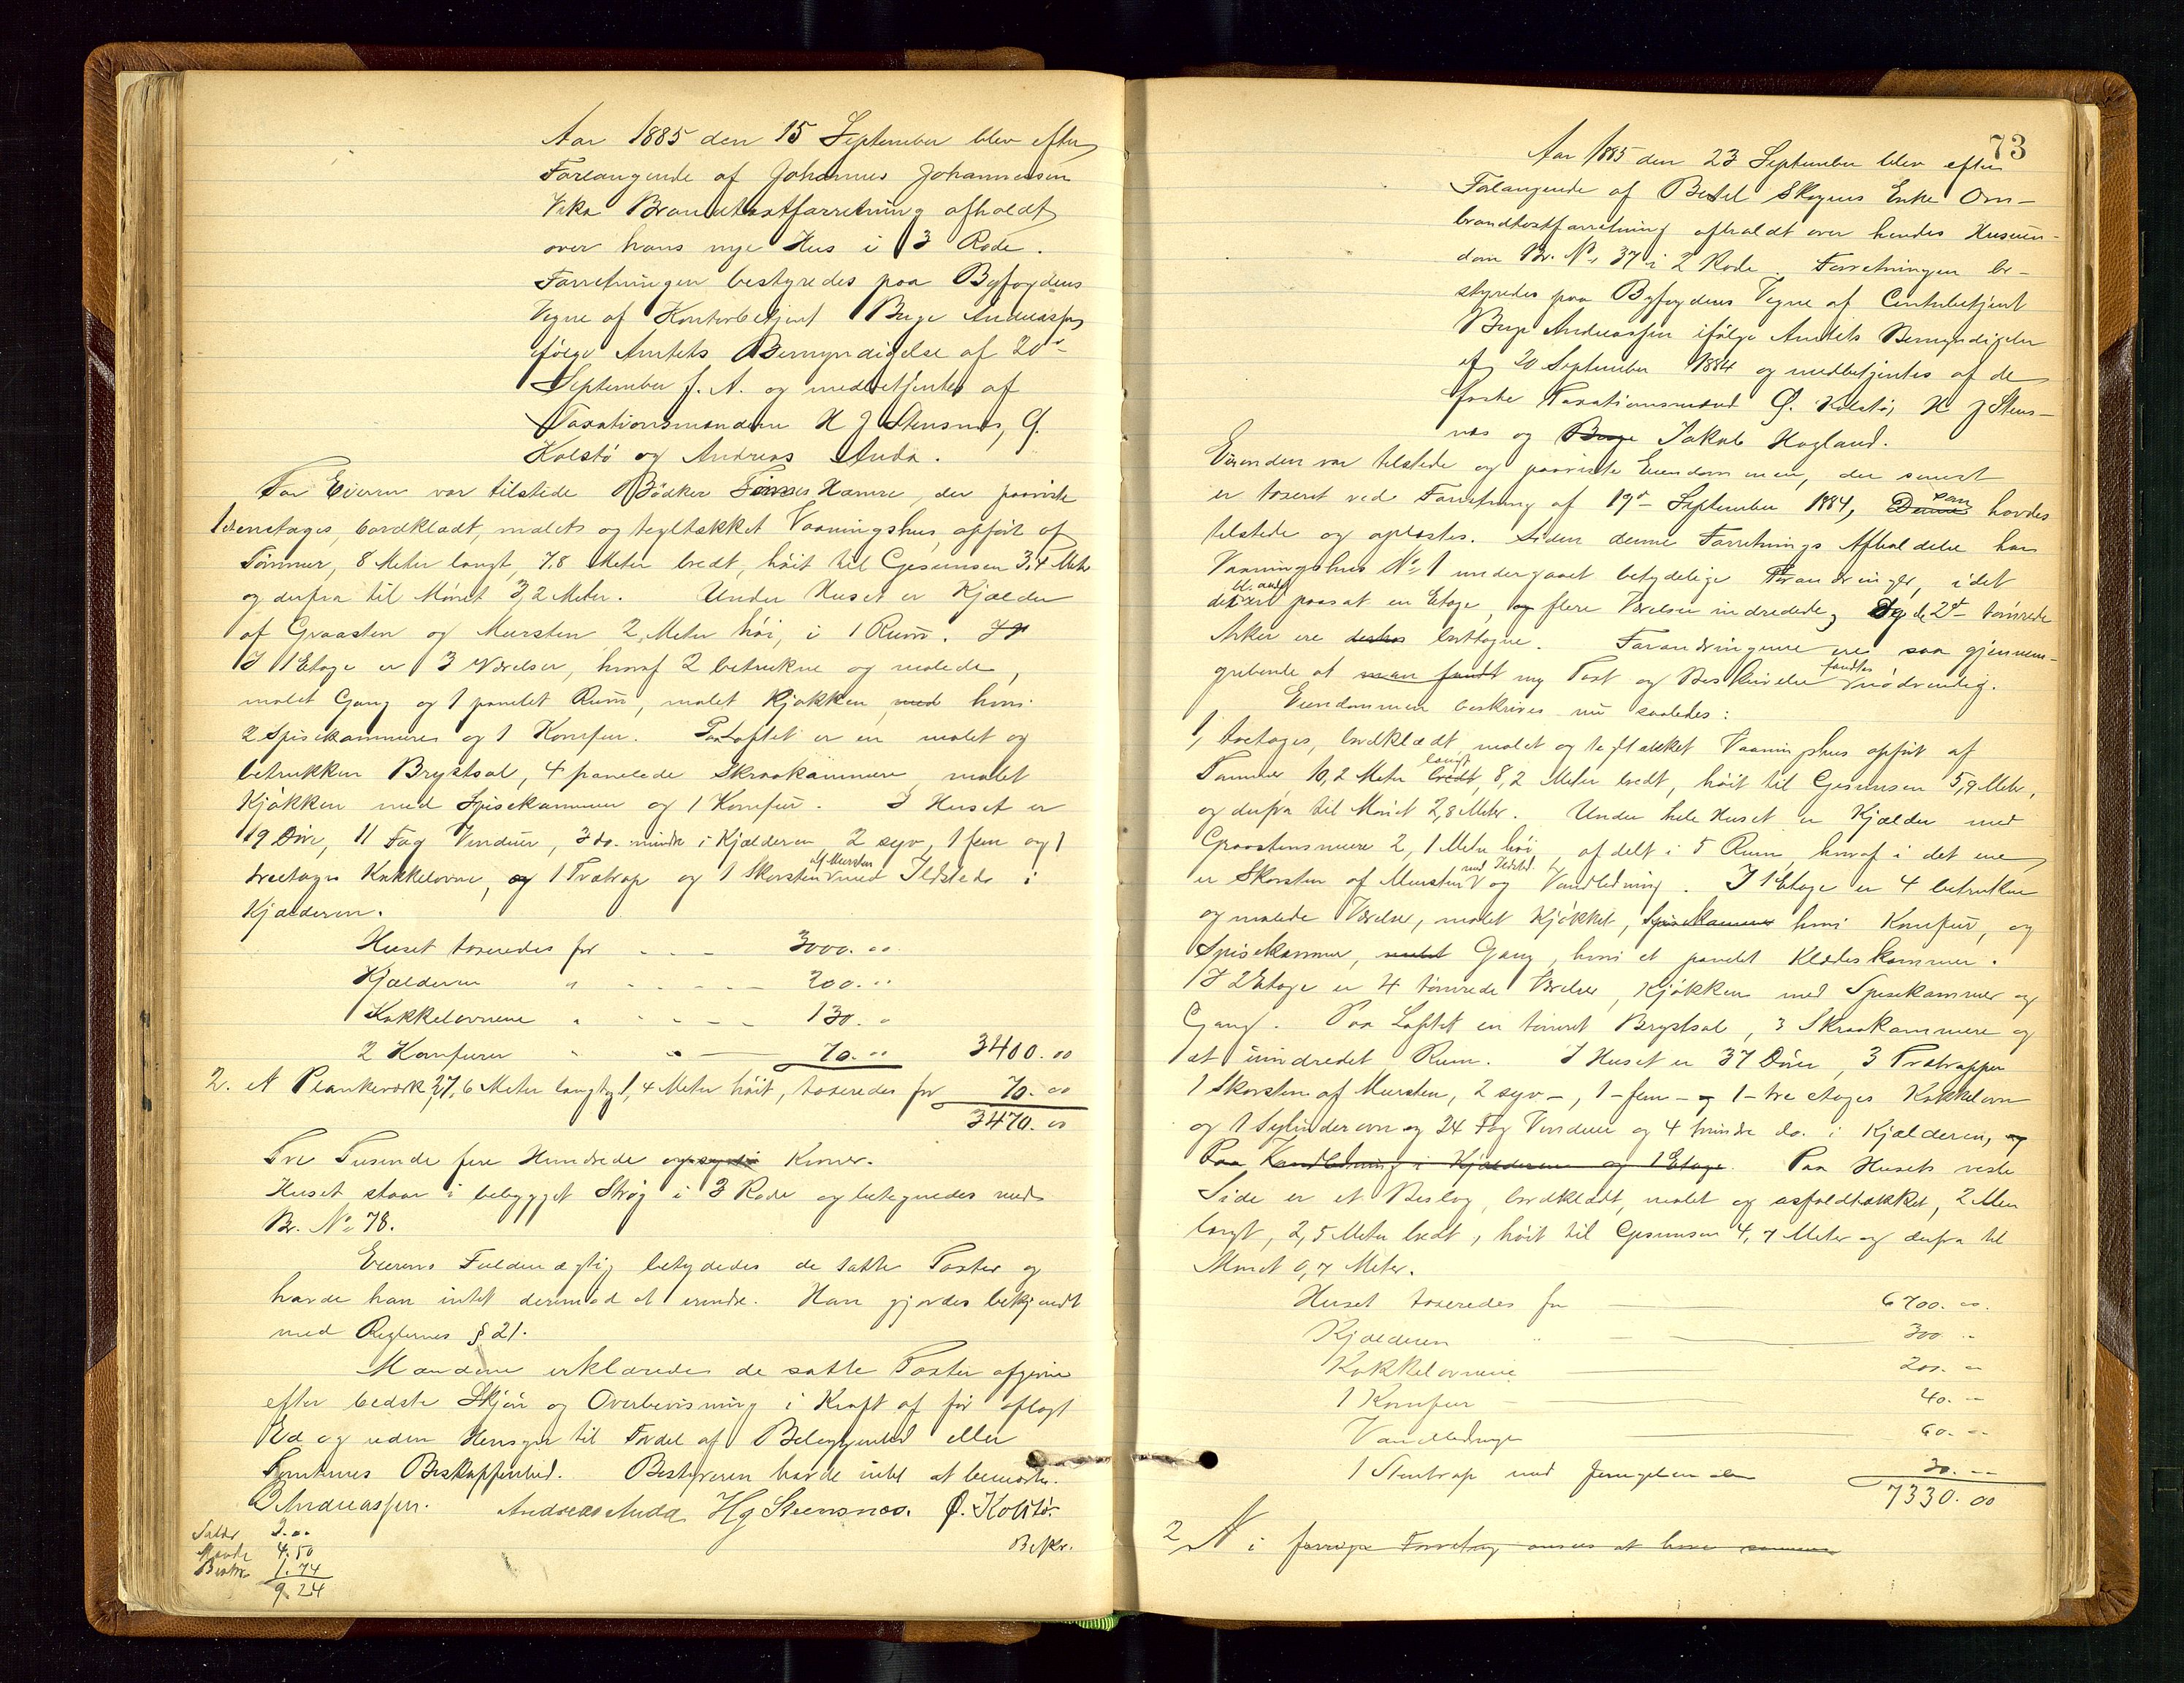 Aar 1885 den 15 September blev efter
Forlangende af Johannes Johannesen
Vika Brandtaxtforretning afholdt
over hans nye Hus i 3 Rode.
Forretningen bestyredes paa Byfogdens
Vegne af Kontorbetjent Berge Andreassen
ifølge Amtets Bemyndigelse af 20de
September f. A. og medbetjentes af
Taxationsmændene H J Stensnæs, Ø.
Kolstø og Andreas Anda.
For Eieren var tilstede Bødker Hamre, der paaviste
1 etetages, bordklædt, malet og tegltækket Vaaningshus, opført af
Tømmer, 8 Meter langt, 7,8 Meter bredt, høit til Gesimsen 3,4 Meter
og derfra til Mønet 3,2 Meter. Under Huset er Kjælder
af Graasten og Mursten 2, Meter høi, i 1 Rum.
I 1 Etage er 3 Værelser, hvoraf 2 betrukne og malede,
malet Gang og 1 panelet Rum, malet Kjøkken med hvori
2 Spisekammere og 1 Komfur. Paa Loftet er en malet og
betrukken Brystsal, 4 panelede Skraakammere, malet
Kjøkken med Spisekammer og 1 Komfur. I Huset er
19 Døre, 11 Fag Vinduer, 3 do. mindre i Kjælderen, 2 syv, 1 fem og 1
treetages Kakkelovne, og 1 Trætrap og 1 Skorsten af Mursten med Ildsteds i
Kjælderen.
Huset taxeredes for - - - 3000. 00
Kjælderen " - - - - 200. 00
Kakkelovnene " - - - 130. "
2 Komfurer " " - 70. 00 3400. 00
2. et Plankeværk 27,6 Meter langt og 1,4 Meter høit, taxeredes for 70. 00
3470. 00
Tre Tusende fire Hundrede Kroner.
Huset staar i bebygget Strøg i 3 Rode og betegnedes med
Br. No 78.
Eierens Fuldmægtig betydedes de satte Taxter og
havde han intet derimod at erindre. Han gjordes bekjendt
med Reglernes § 21.
Mændene erklærede de satte Taxter afgivne
efter bedste Skjøn og Overbevisning i Kraft af før aflagt
Ed og uden Hensyn til Fordel af Beliggenhed eller
Tomtenes Beskaffenhed. Bestyreren havde intet at bemærke.
B Andreassen. Andreas Anda Hg Steensnæs. Ø. Kolstø.
Bekr.
3.00
4.50
1.74
9.24
73
Aar 1885 den 23 September blev efter
Forlangende af Bertel Skognes Enke Om-
brandtaxtforretning afholdt over hendes Huseien-
dom Br. No 37 i 2 Rode. Forretningen be-
styredes paa Byfogdens Vegne af Contorbetjent
Berge Andreassen ifølge Amtets Bemyndigelse
af 20 September 1884 og medbetjentes af de
faste Taxationsmænd Ø. Kolstø, H J Stens-
næs og Berge Jakob Hagland.
Eierinden var tilstede og paaviste Eiendommen, der senest
er taxeret ved Forretning af 19de September 1884, Denne som havdes
tilstede og oplæstes. Siden denne Forretnings Afholdelse har
Vaaningshus No 1 undergaaet betydelige Forandringer, idet
der bl. andt er paasat en Etage, og flere Værelser indredede, og de 2de tømrede
Arker ere borttagne. Forandringerne ere saa gjennem-
gribende at man fandt ny Taxt og Beskrivelse fandtes nødvendig.
Eiendommen beskrives nu saaledes:
1, toetages, bordklædt, malet og tegltækket Vaaningshus opført af
Tømmer, 10,2 Meter bredt langt, 8,2 Meter bredt, høit til Gesimsen 5,9 Meter,
og derfra til Mønet 2,8 Meter. Under hele Huset er Kjælder med
Graastensmure 2,1 Meter høi, afdelt i 5 Rum, hvoraf i det ene
er Skorsten af Mursten med Ildsted og Vandledning. I 1 Etage er 4 betrukne
og malede Værelser, malet Kjøkket, Spisekammer hvori Komfur, og
Spisekammer, malet Gang, hvori et panelet Klædeskammer.
I 2 Etage er 4 tømrede Værelser, Kjøkken med Spisekammer og
Gang. Paa Loftet en tømret Brystsal, 3 Skraakammere og
et uindredet Rum. I Huset er 37 Døre, 3 Trætrapper
1 Skorsten af Mursten, 2 syv-, 1-fem- og 1-tre etages Kakkelovn
og 1 Sylinderovn og 24 Fag Vinduer og 4 mindre do. i Kjælderen, og
Paa Vandledning i Kjælderen og 1 Etage. Paa Husets vestre
Side er et Beslag, bordklædt, malet og asfaldtækket, 2 Meter
langt, 2,5 Meter bredt, høit til Gesimsen 4,7 Meter og derfra til
Mønet 0,7 Meter.
Huset taxeredes for - 6700. 00.
Kjælderen " - 300. "
Kakkelovnene - 200. "
1 Komfur - 40. "
Vandledningen - 60. "
1 Stentrap med - 30. "
7330. 00
2 Et i forrige Forretng ansees at have samme